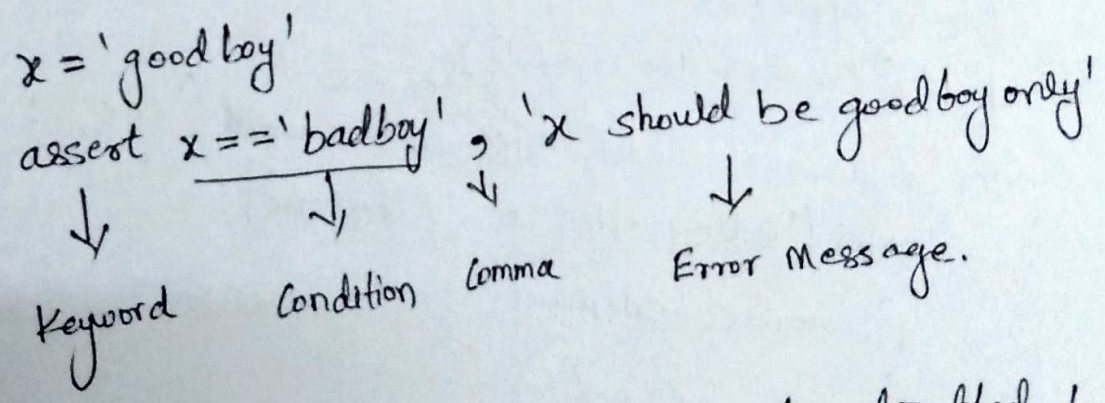 x = 'good boy'
assert x == 'badboy' , 'x should be goodboy only'
Keyword Condition Comma Error Message.